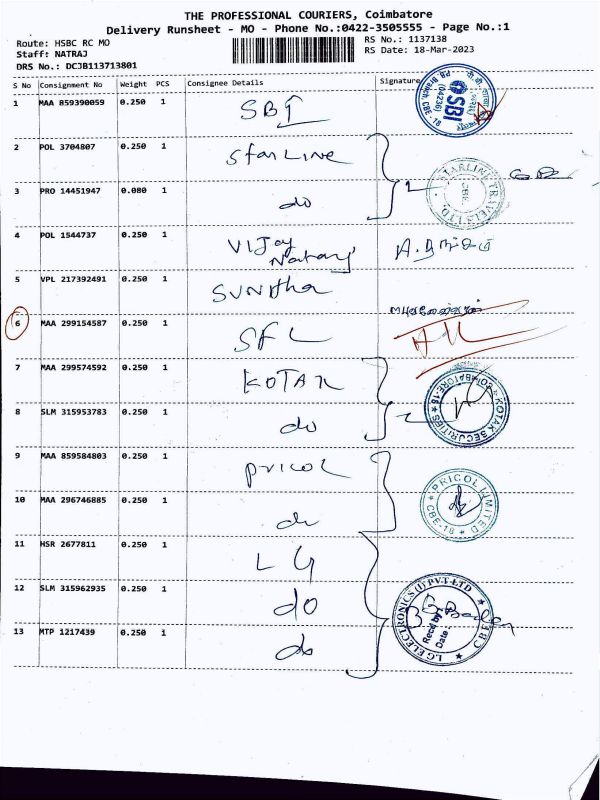 THE PROFESSIONAL COURIERS, Coimbatore
Delivery Runsheet - MO - Phone No.:0422-3505555 - Page No.:1
Route: HSBC RC MO
Staff: NATRAJ
DRS No.: DCJB113713801
RS No.: 1137138
RS Date: 18-Mar-2023
S No Consignment No Weight PCS Consignee Details Signature
1 MAA 859390059 0.250 1 SBI
SBI (04236) P.B. Branch, CBE - 18
2 POL 3704807 0.250 1 StarLine
3 PRO 14451947 0.080 1 do
STARLINE TRAVELS LTD. CBE
4 POL 1544737 0.250 1 Vijay Nataraj
5 VPL 217392491 0.250 1 SUNitha
6 MAA 299154587 0.250 1 SFL
7 MAA 299574592 0.250 1 KOTAK
8 SLM 315953783 0.250 1 do
KOTAK SECURITIES COIMBATORE-18
9 MAA 859584803 0.250 1 Pricol
10 MAA 296746885 0.250 1 do
PRICOL LIMITED CBE-18
11 HSR 2677811 0.250 1 LG
12 SLM 315962935 0.250 1 do
13 MTP 1217439 0.250 1 do
LG ELECTRONICS (I) PVT. LTD CBE
Recd by
Date :